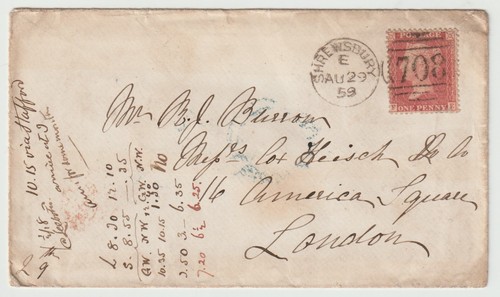 SHREWSBURY
E
AU 29
59
708
POSTAGE
ONE PENNY
Mr. R. J. Burrow
Messrs Cox Heisch & Co
16 America Square
London
10.15 via Stafford
L 8.30 12.10
S. 8.55 - .35
G.W. NW G.W. N.W.
10.25 10.15 1.30 No
2.50 3- 6.35
7.20 6½ 6.25